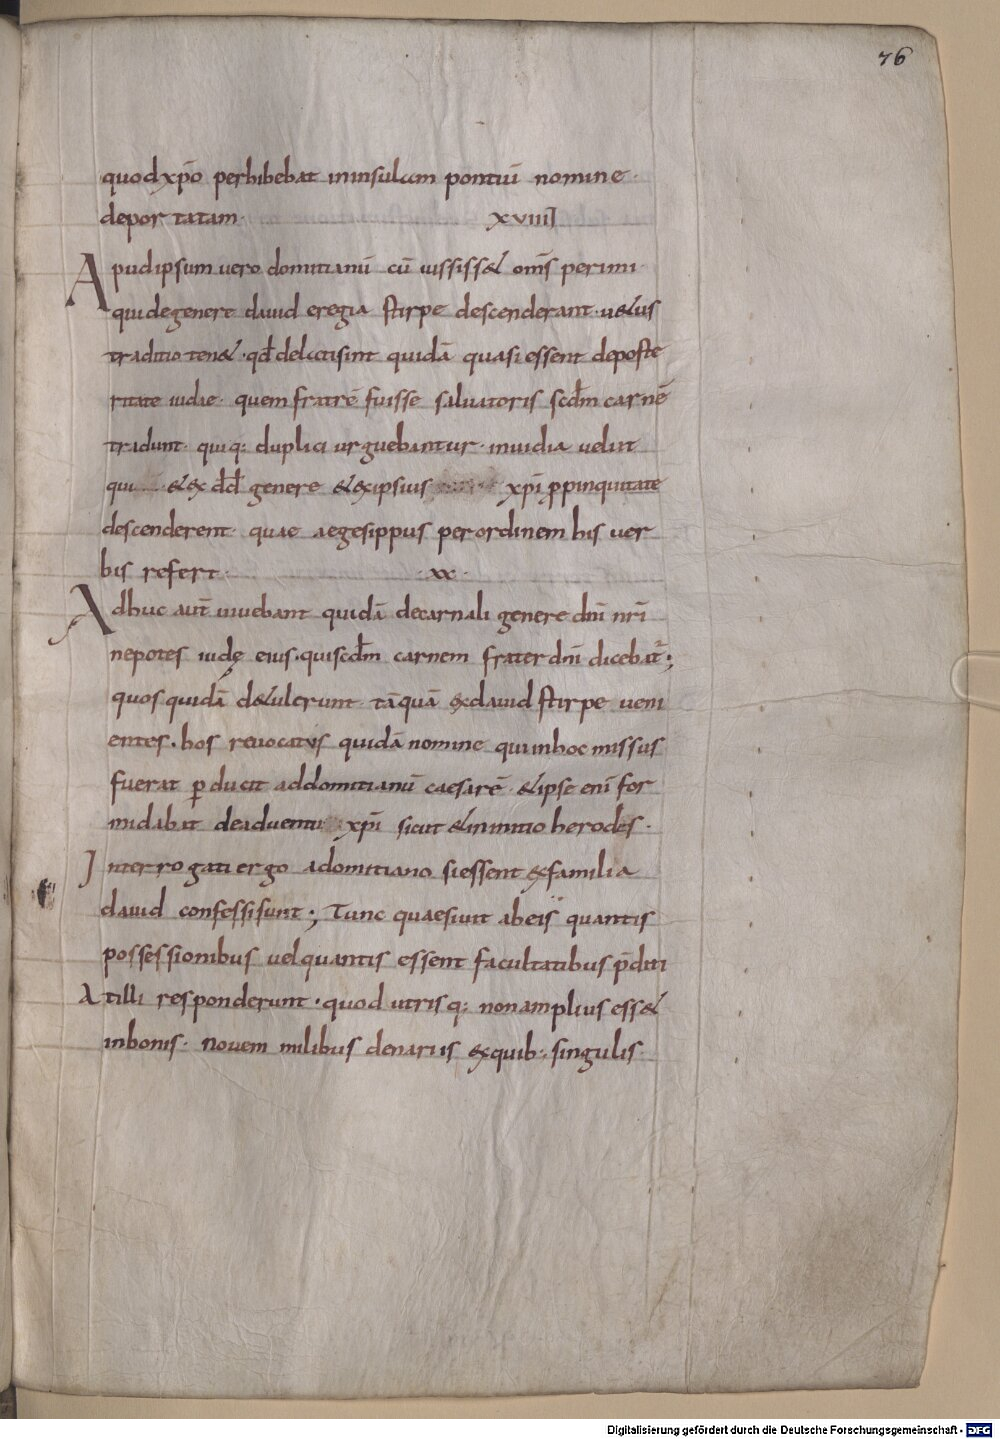 76
quodxp̄o perhibebat ininsulam pontiū nomine·
deportatam· xviiii
Apudipsum vero domitianū cū iussiss& om̄s perimi·
quidegenere dauid eregia stirpe descenderant· u&us
traditio ten&· qd̄ delatisint quidā quasi essent deposte
ritate iudae· quem fratrē fuisse saluatoris scd̄m carnē
tradunt· quiq: duplici urguebantur· inuidia velut
qui &ex d̄d̄ genere &exipsius xp̄i ppinquitate
descenderent· quae aegesippus perordinem his uer
bis refert· ·xx·
Adhuc aut̄ uiuebant quidā decarnali genere dn̄i nr̄i
nepotes iudę eius·quiscd̄m carnem frater dn̄i dicebat̄;
quos quidā d&ulerunt· tāquā exdauid stirpe ueni
entes·hos reuocatus quidā nomine quiinhoc missus
fuerat pducit addomitianū caesarē·&ipse enī for
midabat deaduentu xp̄i sicut &ininitio herodes·
Interrogati ergo adomitiano siessent exfamilia
dauid confessisunt; Tunc quaesiuit abeis quantis
possessionibus uelquantis essent facultatibus p̄diti
Atilli responderunt·quod utrisq: nonamplius ess&
inbonis· nouem milibus denariis exquib: singulis·
Digitalisierung gefördert durch die Deutsche Forschungsgemeinschaft - DFG